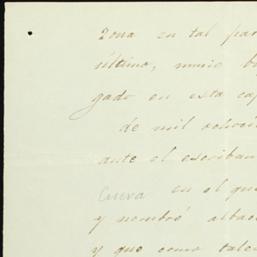 Zona en tal par
último, munic b
gado en esta cap
de mil ochoci
ante el escriban
Cueva en el qu
y nombró albac
y que como tales